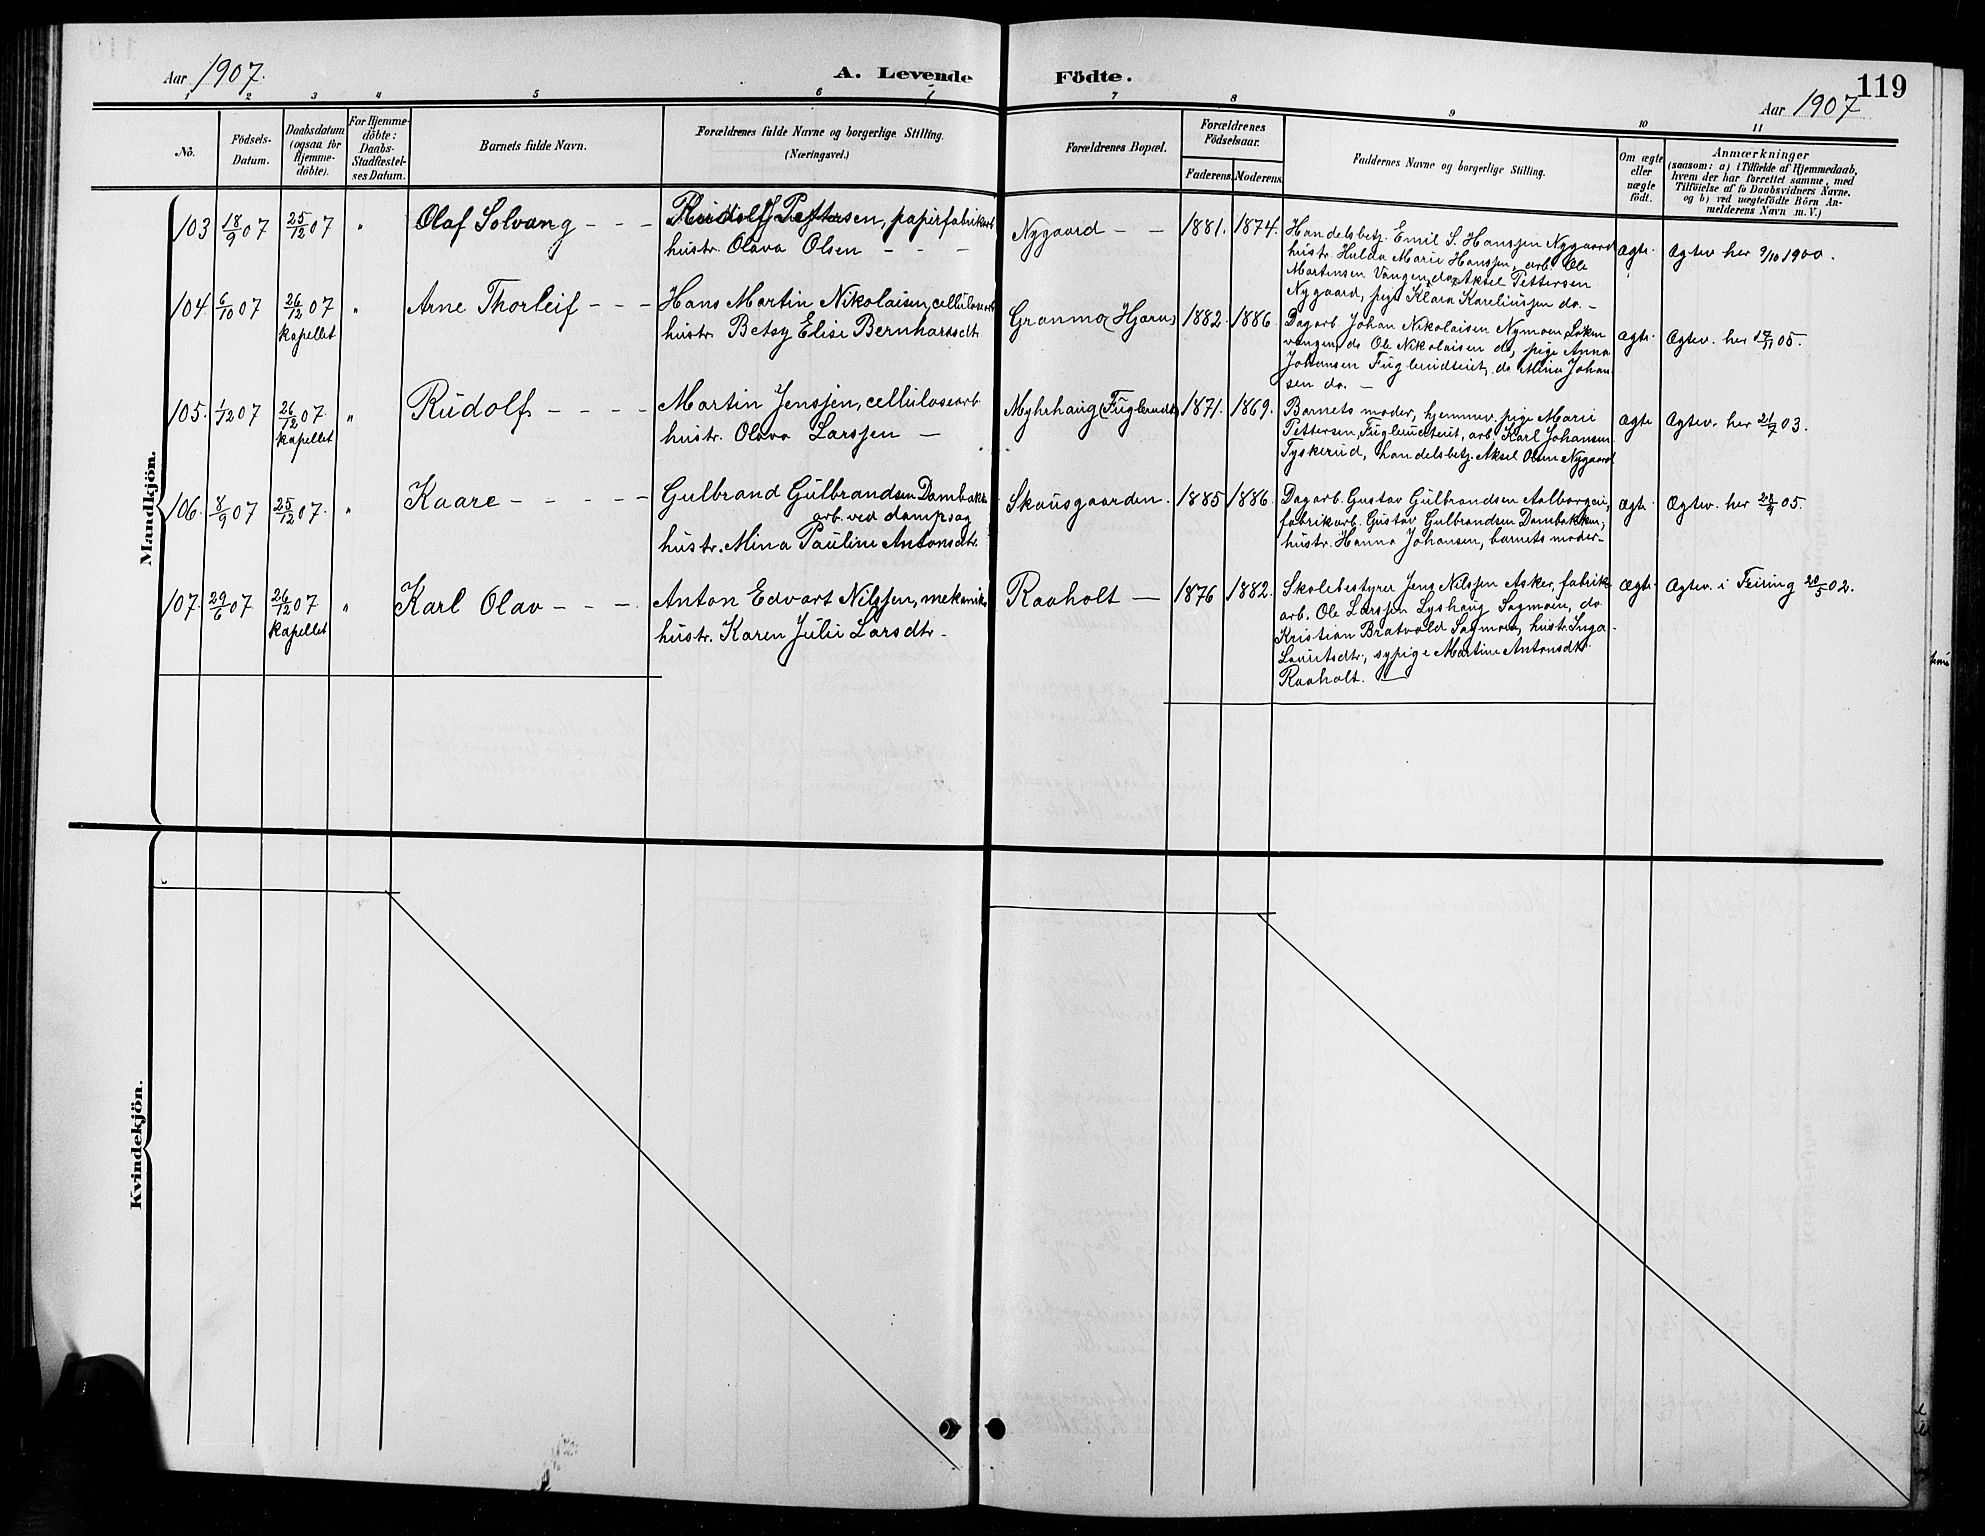 Aar 1907.
A. Levende Födte.
119
Aar 1907
1 2 3 4 5 6 7 8 9 10 11
No.
Födsels-
Datum.
Daabsdatum
(ogsaa for
Hjemme-
döbte).
For Hjemme-
döbte:
Daabs-
Stadfæstel-
ses Datum.
Barnets fulde Navn.
Forældrenes fulde Navne og borgerlige Stilling.
(Næringsvei.)
Forældrenes Bopæl.
Forældrenes
Födselsaar.
Faderens. Moderens.
Faddernes Navne og borgerlige Stilling.
Om ægte
eller
uægte
födt.
Anmærkninger
(saasom: a) i Tilfælde af Hjemmedaab,
hvem der har forrettet samme, med
Tilföielse af to Daabsvidners Navne,
og b) ved uægtefödte Börn An-
melderens Navn m. V.)
Mandkjön.
103 18/9 07 25/12 07 " Olaf Solvang - - -
Pettersen, papirfabrikarb
hustr. Olava Olsen - - -
Nygaard - - 1881. 1874.
Handelsbetj. Emil S. Hanssen Nygaard
hustr. Hulda Marie Hanssen, arb. Ole
Martinsen Vangen, do Aksel Pettersen
Nygaard, pige Klara Kareliussen do. -
Ægte. Ægtev her 9/10 1900.
104. 6/10 07 26/12 07 " Arne Thorleif - - -
kapellet
Hans Martin Nikolaisen, cellulosearb
hustr. Betsy Elise Bernhardsdtr.
Granmo (Hjera) 1882. 1886.
Dagarb. Johan Nikolaisen Nymoen Løken
vangen, do Ole Nikolaisen do, pige Anna
Johansen Fuglerudteiet, do Mina Johan
sen do. -
Ægte. Ægtev. her 17/11 05.
105. 1/12 07 26/12 07. " Rudolf - - - -
kapellet
Martin Jenssen, cellulosearb.
hustr. Olava Larssen -
Myhrhaug (Fuglerudt) 1871. 1869.
Barnets moder, hjemmev. pige Marie
Pettersen, Fuglerudteiet, arb. Karl Johansen
Tyskerud, handelsbetj. Aksel Olsen Nygaard
Ægte Ægtev. her 21/7 03.
106. 8/9 07 25/12 07. " Kaare - - - - -
Gulbrand Gulbrandsen Dambakk
arb. ved dampsag
hustr. Mina Pauline Antonsdtr.
Skausgaarden. 1885 1886.
Dagarb. Gustav Gulbrandsen Aalborgeie,
fabrikarb. Gustav Gulbrandsen Dambakken,
hustr. Hanna Johansen, barnets moder -
Ægte. Ægtev. her 28/9 05.
107. 29/6 07 26/12 07 " Karl Olav - - -
kapellet
Anton Edvart Nilssen, mekanik.
hustr. Karen Julie Larsdtr -
Raaholt - 1876 1882.
Skolebestyrer Jens Nilssen Asker, fabrik
arb. Ole Larssen Lyshaug Sagmoen, do
Kristian Bratvold Sagmoen, hustr. Inga
Lauritsdtr., sypige Martine Antonsdtr.
Raaholt. -
Ægte. Ægtev. i Feiring 20/5 02.
Kvindekjön.